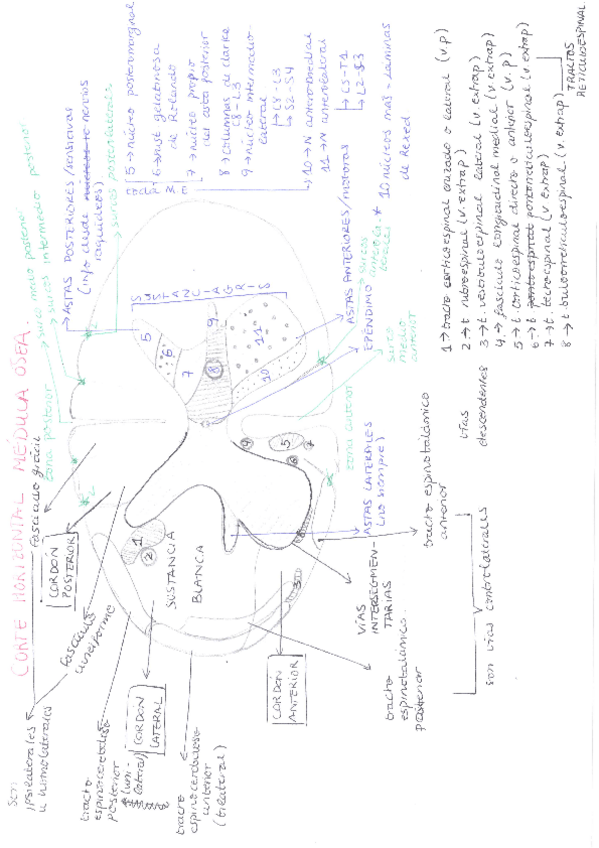 CORTE HORIZONTAL MÉDULA OSEA.
son
ipsilaterales
u homolaterales
fascículo grácil
CORDÓN
POSTERIOR
fascículo
cuneiforme
tracto
espinocerebeloso
posterior
CORDÓN
LATERAL
tracto
espinocerebeloso
anterior
(bilateral)
CORDÓN
ANTERIOR
SUSTANCIA
BLANCA
1
2
3
4
5
6
7
8
zona posterior
surco medio posterior
surco intermedio posterior
surco posterolateral
→ ASTAS POSTERIORES/sensitivas
(info desde nervios
raquídeos)
5 → núcleo posteromarginal
6 → sust gelatinosa
de Rolando
7 → núcleo propio
del asta posterior
8 → columnas de clarke
C8-L3
9 → núcleo intermedio-
lateral
→ C8-L3
→ S2-S4
→ 10 → N anteromedial
11 → N anterolateral
→ C5-T1
→ L2-S3
10 núcleos más - láminas
de Rexed
SUSTANCIA GRIS
5
6
7
8
9
10
11
ASTAS ANTERIORES/motoras
EPÉNDIMO
surco
medio
anterior
zona anterior
→ ASTAS LATERALES
(no siempre)
VÍAS
INTERSEGMEN-
TARIAS
tracto espinotalámico
anterior
tracto
espinotalámico
posterior
son vías contralaterales
vías
descendentes
1 → tracto corticoespinal cruzado o lateral (v.p)
2 → t rubroespinal (v. extrap)
3 → t. vestibuloespinal lateral (v. extrap)
4 → fascículo longitudinal medial (v. extrap)
5 → t corticoespinal directo o anterior (v. p)
6 → t pontoreticuloespinal (v. extrap)
7 → t. tectoespinal (v extrap)
8 → t bulborreticuloespinal (v. extrap)
TRACTOS
RETICULOESPINAL